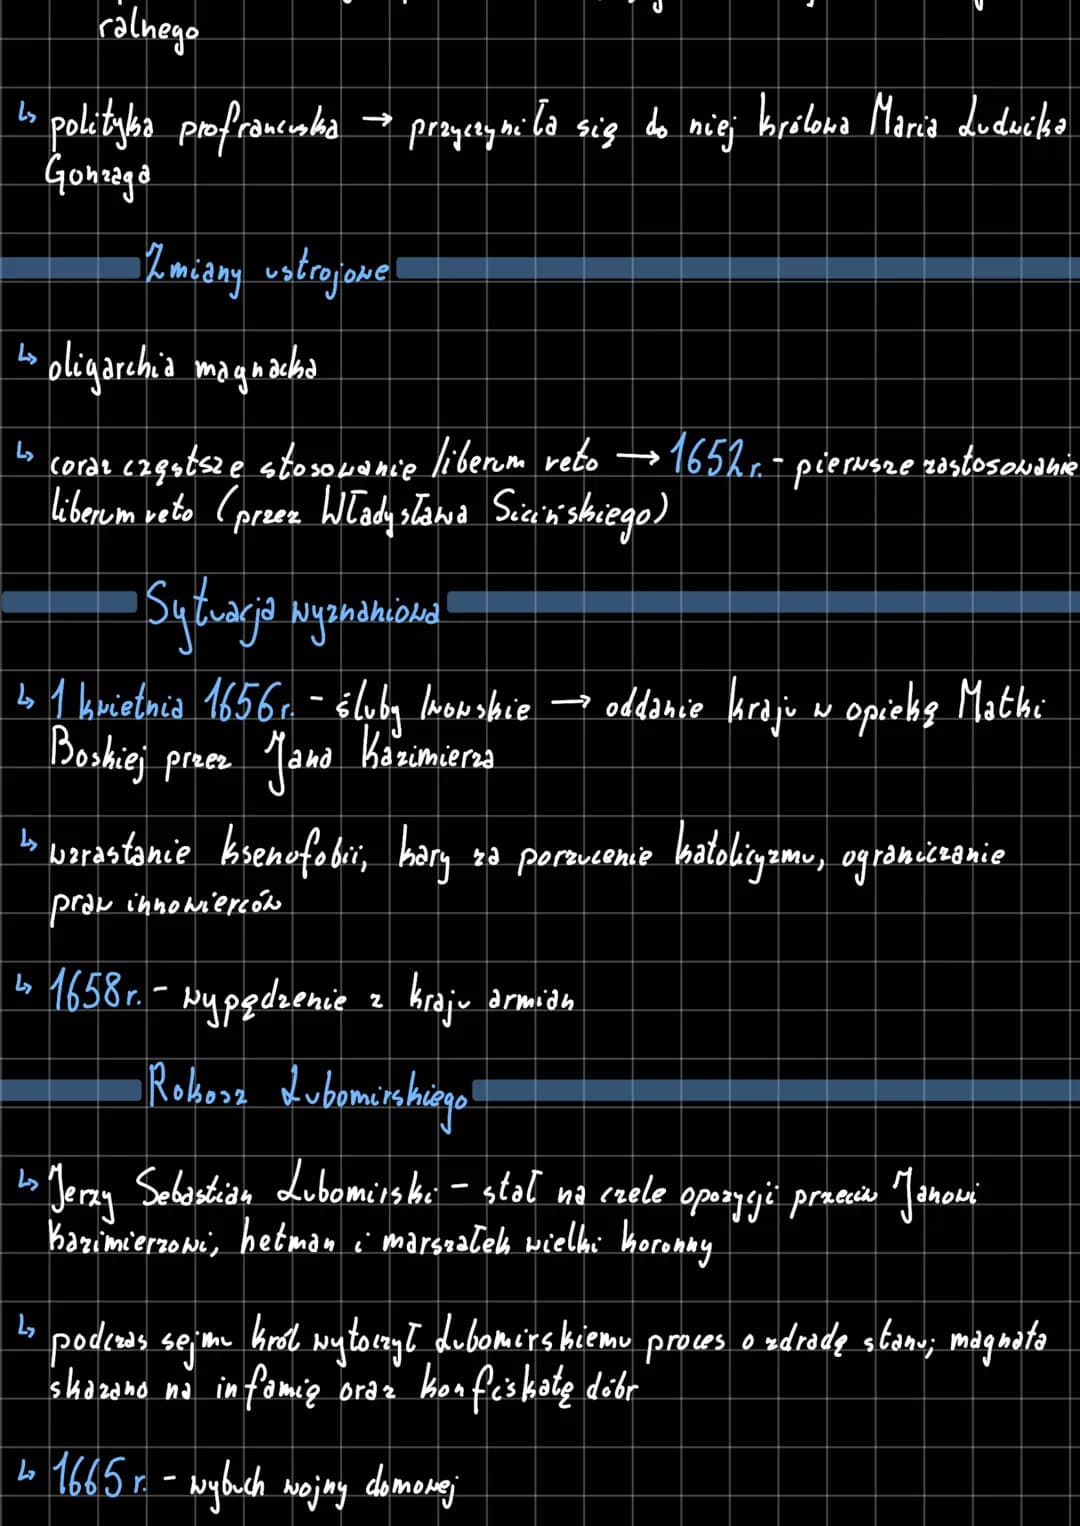 ralnego
↳ polityka profrancuska → przyczyniła się do niej królowa Maria Ludwika
Gonzaga
Zmiany ustrojowe
↳ oligarchia magnacka
↳ coraz częstsze stosowanie liberum veto → 1652 r. - pierwsze zastosowanie
liberum veto (przez Władysława Sicińskiego)
Sytuacja wyznaniowa
↳ 1 kwietnia 1656 r. - śluby lwowskie → oddanie kraju w opiekę Matki
Boskiej przez Jana Kazimierza
↳ wzrastanie ksenofobii, kary za porzucenie katolicyzmu, ograniczanie
praw innowierców
↳ 1658 r. - wypędzenie z kraju armian
Rokosz Lubomirskiego
↳ Jerzy Sebastian Lubomirski - stał na czele opozycji przeciw Janowi
Kazimierzowi, hetman i marszałek wielki koronny
↳ podczas sejmu król wytoczył Lubomirskiemu proces o zdradę stanu; magnata
skazano na infamię oraz konfiskatę dóbr
↳ 1665 r. - wybuch wojny domowej